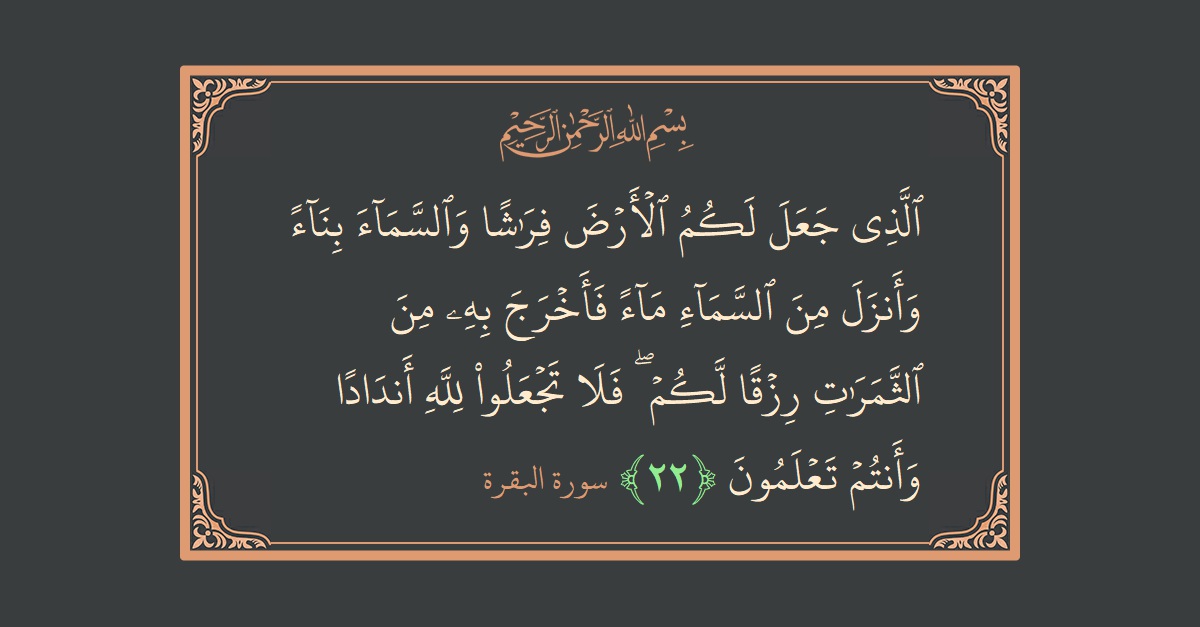 بِسْمِ ٱللَّهِ ٱلرَّحْمَٰنِ ٱلرَّحِيمِ
ٱلَّذِى جَعَلَ لَكُمُ ٱلْأَرْضَ فِرَٰشًا وَٱلسَّمَآءَ بِنَآءً
وَأَنزَلَ مِنَ ٱلسَّمَآءِ مَآءً فَأَخْرَجَ بِهِۦ مِنَ
ٱلثَّمَرَٰتِ رِزْقًا لَّكُمْ ۖ فَلَا تَجْعَلُوا۟ لِلَّهِ أَندَادًا
وَأَنتُمْ تَعْلَمُونَ ﴿٢٢﴾ سورة البقرة